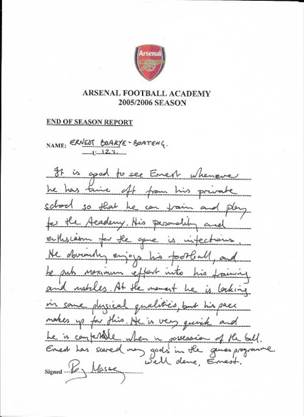 Arsenal
ARSENAL FOOTBALL ACADEMY
2005/2006 SEASON
END OF SEASON REPORT
NAME: ERNEST BOAKYE-BOATENG.
It is good to see Ernest whenever
he has time off from his private
school so that he can train and play
for the Academy. His personality and
enthusiasm for the game is infectious.
He obviously enjoys his football, and
he puts maximum effort into his training
and matches. At the moment he is lacking
in some physical qualities, but his pace
makes up for this. He is very quick and
he is comfortable when in possession of the ball.
Ernest has scored many goals in the games programme
Well done, Ernest.
Signed